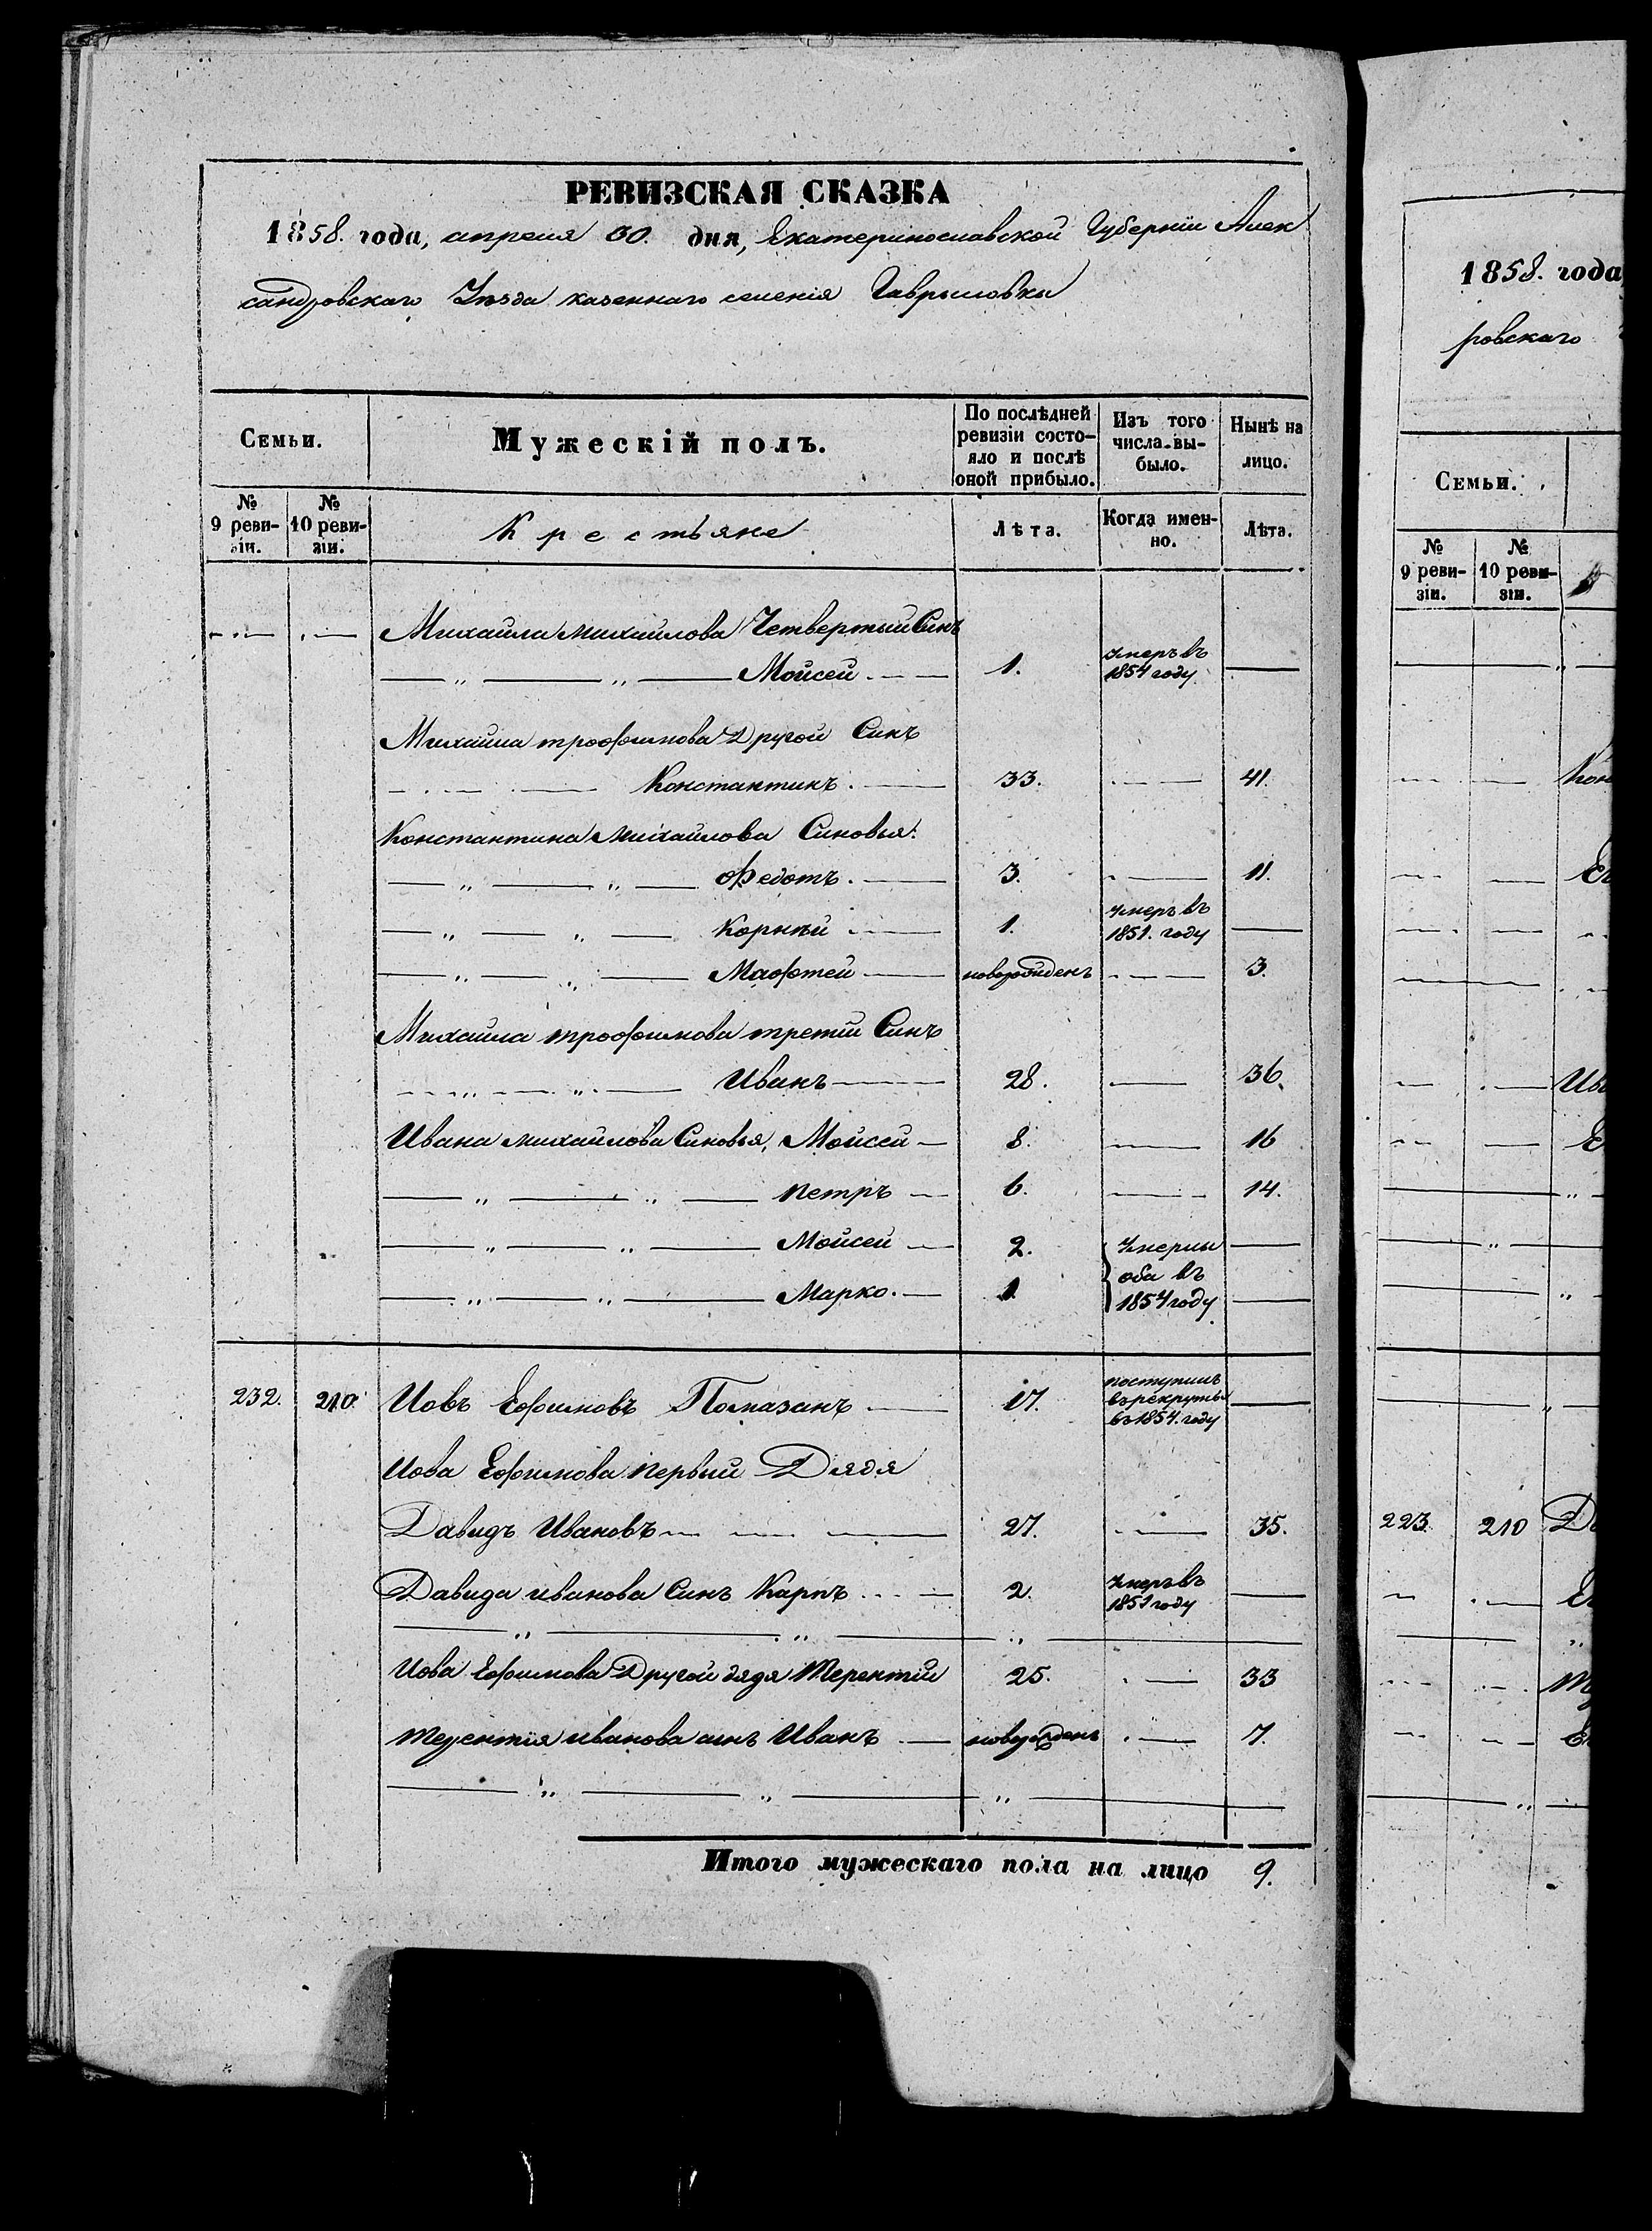 РЕВИЗСКАЯ СКАЗКА
1858. года, апреля 30. дня, Екатеринославской Губерніи Алек
сандровскаго Уѣзда казеннаго селенія Гаврыловки
Семьи.
Мужескій полъ.
По послѣдней ревизіи состо-яло и послѣ оной прибыло.
Изъ того числа вы-было.
Нынѣ на лицо.
№ 9 реви-зіи.
№ 10 реви-зіи.
Крестьяне
Лѣта.
Когда имен-но.
Лѣта.
Михайла Михайлова Четвертый Синъ
— „ — „ — Мойсей 1. умеръ въ 1854 году —
Михайла трофимова Другой Синъ
Константинъ. 33. — 41.
Константина Михайлова Синовья:
— „ — „ — Федотъ. 3. — 11.
— „ — „ — Корнѣй 1. умеръ въ 1851. году —
— „ — „ — Мафтей новорожденъ — 3.
Михайла трофимова третій Синъ
— „ — „ — Иванъ 28. — 36.
Ивана михайлова Синовья, Мойсей 8. — 16
— „ — „ — петръ 6. — 14.
— „ — „ — Мойсей 2. умерлы —
— „ — „ — Марко. 1. оба въ 1854 году —
232. 210. Иовъ Ефимовъ Помазанъ 17. поступилъ въ рекруты въ 1854. году —
Иова Ефимова первый Дядя
Давидъ Ивановъ 27. — 35.
Давида иванова Синъ Карпъ 2. умеръ въ 1851 году —
— „ — „ — „ —
Иова Ефимова Другой дядя Терентій 25. — 33
Терентія иванова синъ Иванъ новорожденъ — 7.
— „ — „ — „ —
Итого мужескаго пола на лицо 9.
1858. года
ровскаго
Семьи.
№ 9 реви-зіи.
№ 10 реви-зіи.
223. 210